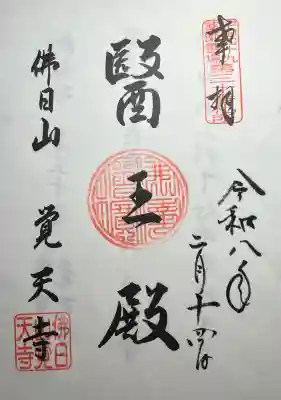 奉拝
令和八年
二月十四日
醫王殿
佛日山 覚天寺
佛日
覚
天寺